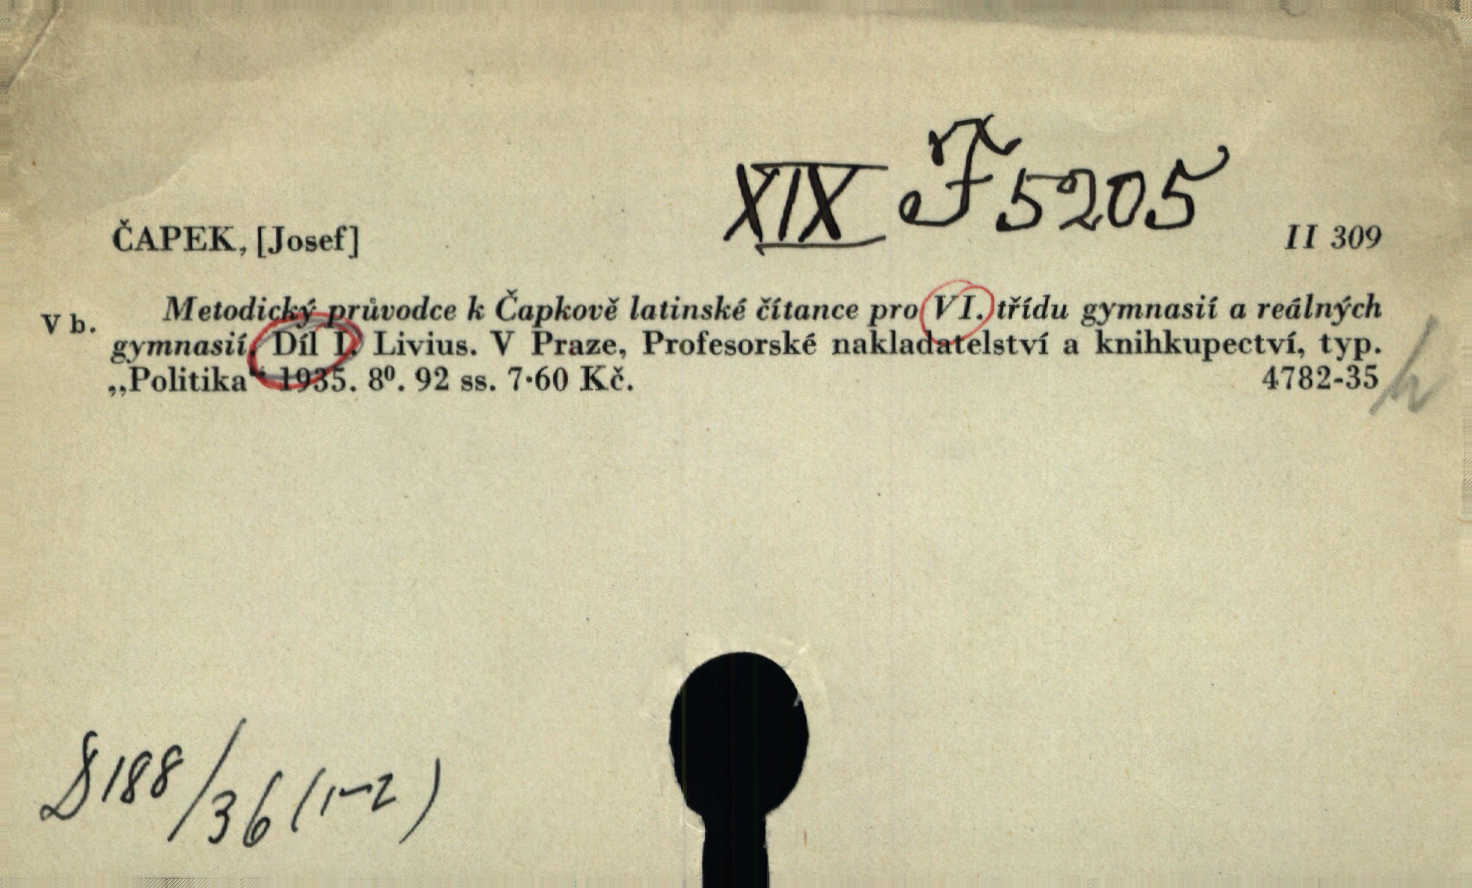 XIX F 5205
ČAPEK, [Josef] II 309
V b. Metodický průvodce k Čapkově latinské čítance pro VI. třídu gymnasií a reálných
gymnasií. Díl I. Livius. V Praze, Profesorské nakladatelství a knihkupectví, typ.
„Politika“ 1935. 8⁰. 92 ss. 7·60 Kč. 4782-35
D 188/36 (1-2)